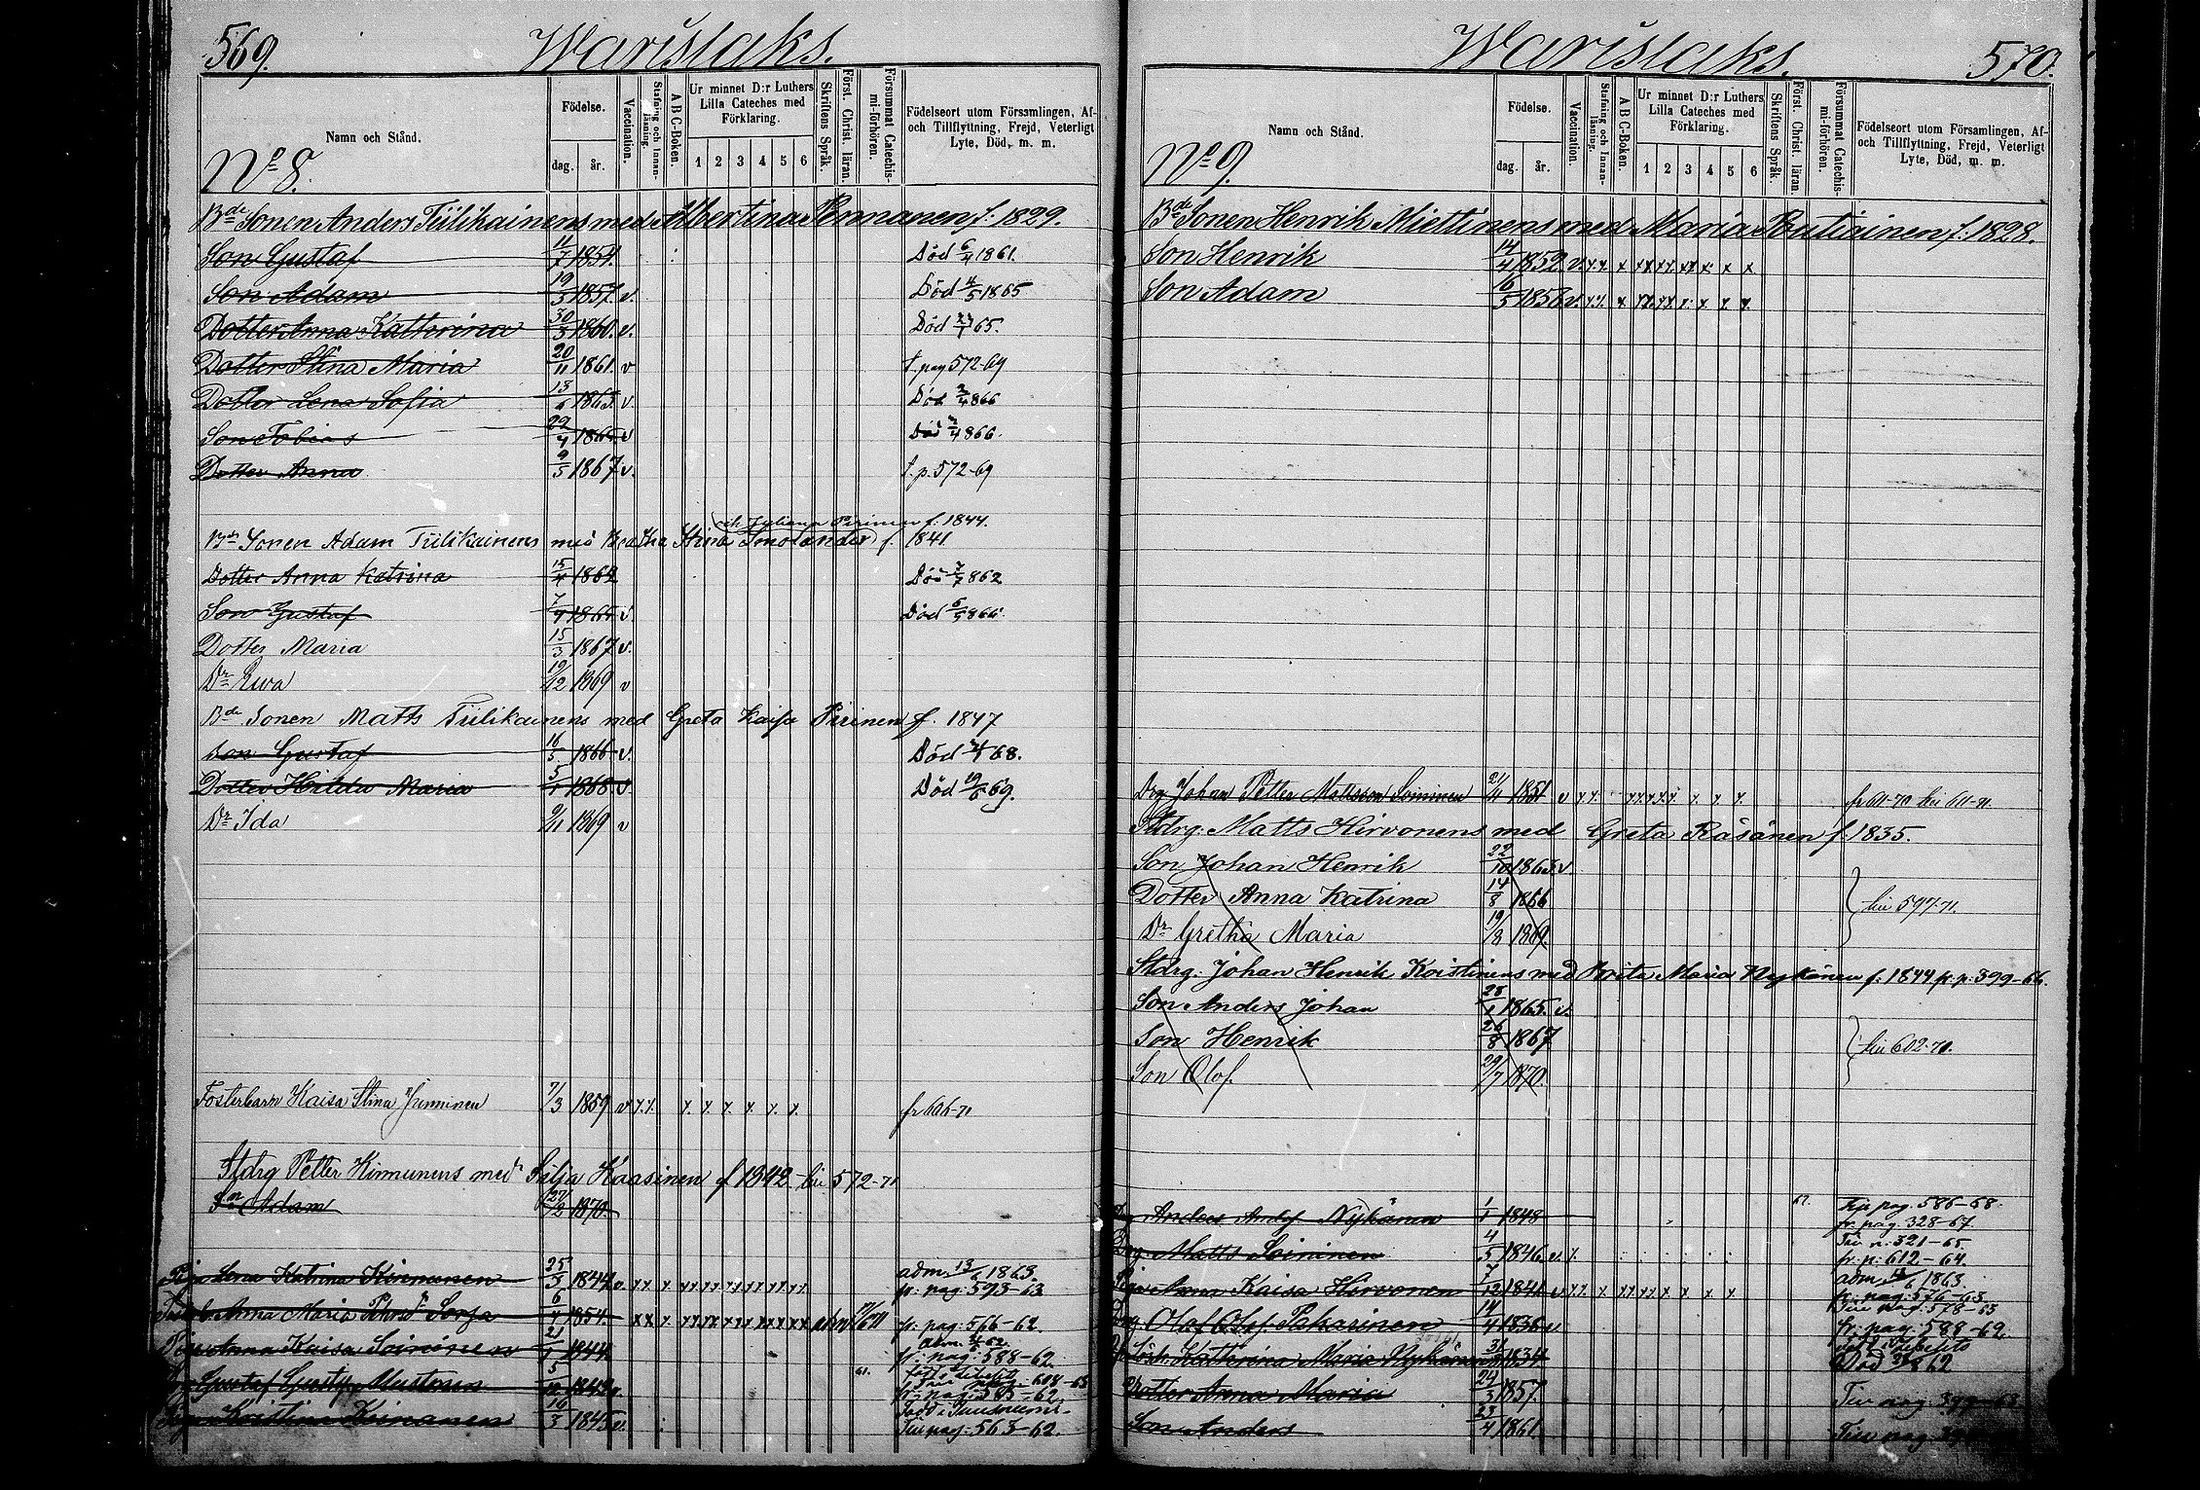 569. Waristaks.
Namn och Stånd.
Födelse.
dag. år.
Vaccination.
Stafning och Innanläsning.
A B C-Boken.
Ur minnet D:r Luthers Lilla Cateches med Förklaring.
1 2 3 4 5 6
Skriftens Språk.
Först. Christ. läran.
Försummat Catechismi-förhören.
Födelseort utom Församlingen, Af- och Tillflyttning, Frejd, Veterligt Lyte, Död, m. m.
No 8.
Bde Sonen Anders Tiilikainens med Albertina Permanen f. 1829.
Son Gustaf 11/7 1854. Död 6/4 1861.
Son Adam 19/3 1857. v. Död 4/5 1865
Dotter Anna Katherina 30/3 1860. v. Död 65.
Dotter Stina Maria 20/11 1861. v f. pag 572-69
Dotter Lena Sofia 13 1863. v. Död 2/4 866
Son Tobias 29/4 1865 v Död 4 866.
Dotter Anna 9/5 1867. v. f. p. 572-69
och Juliana Pirinen f. 1844.
Bde Sonen Adam Tiilikainens med Stina Smolander f. 1841
Dotter Anna Katrina 15/4 1862 Död 7/7 862
Son Gustaf 7/9 1865 v. Död 5/5 866.
Dotter Maria 15/3 1867 v.
Dr Ewa 19/12 1869 v
Bde Sonen Matts Tiilikainens med Greta Kaisa Pirinen f. 1847
Son Gustaf 16/5 1866 v. Död 68.
Dotter Hilda Maria 5/1 1868 v. Död 19/6 69.
Dr Ida 2/11 1869 v
Fosterbarn Kaisa Stina Junninen 7/3 1859 v x x x x x x x x fr 606-71
Stdrg Petter Kinnunens med Silja Kaasinen f 1842 till 572-71
Sn Adam 27/2 1870.
Piga Lena Katrina Kinnunen 25/3 1844. v. adm. 13/6 1863.
fr. pag. 593-63
Anna Maria Sorja 6/4 1854. fr. pag: 566-62.
Piga Anna Kaisa Soininen 21/1 1844. fr. pag: 588-62.
Gustaf Gust: Mustonen 5 1842 v. 61.
16/3 1845 v. Till pag: 563-62.
Waristaks. 570.
Namn och Stånd.
Födelse.
dag. år.
Vaccination.
Stafning och Innanläsning.
A B C-Boken.
Ur minnet D:r Luthers Lilla Cateches med Förklaring.
1 2 3 4 5 6
Skriftens Språk.
Först. Christ. läran.
Försummat Catechismi-förhören.
Födelseort utom Församlingen, Af- och Tillflyttning, Frejd, Veterligt Lyte, Död, m. m.
No 9.
Bde Sonen Henrik Miettinens med Maria Poutiainen f. 1828.
Son Henrik 14/4 1852 v. x x x x x x x x x x x
Son Adam 16/5 1858 v. x x x x x x x x x x x
Drg Johan Petter Mattsson Soininen 21/4 1851 v x x x x x x x x x fr 611-70 till 611-71.
Stdrg. Matts Hirvonens med Greta Räsänen f. 1835.
Son Johan Henrik 22/10 1863. v.
Dotter Anna Katrina 14/8 1866 till 597-71.
Dr Gretha Maria 19/8 1869.
Stdrg. Johan Henrik Koistinens med Brita Maria Nykänen f. 1844 fr. p. 399-66.
Son Anders Johan 28/1 1865. v.
Son Henrik 26/8 1867 till 602-70.
Son Olof. 29/7 1870.
Drg Anders Nykänen 1/1 1848 67. Till pag. 586-68.
fr. pag: 328-67
Drg Matts Soininen 4/5 1846. v. x Till p. 321-65
fr. p: 612-64.
Piga Anna Kaisa Hirvonen 7/12 1841 v adm 1863.
fr. pag: 576-63
Till pag. 578-63
Drg Olof Olof. Pakarinen 14/4 1838 v fr. pag: 588-62
Katherina Maria Nykänen 31 1834 Död 862
Dotter Anna Maria 24/3 1857.
Son Anders 23/4 1861. Till pag.